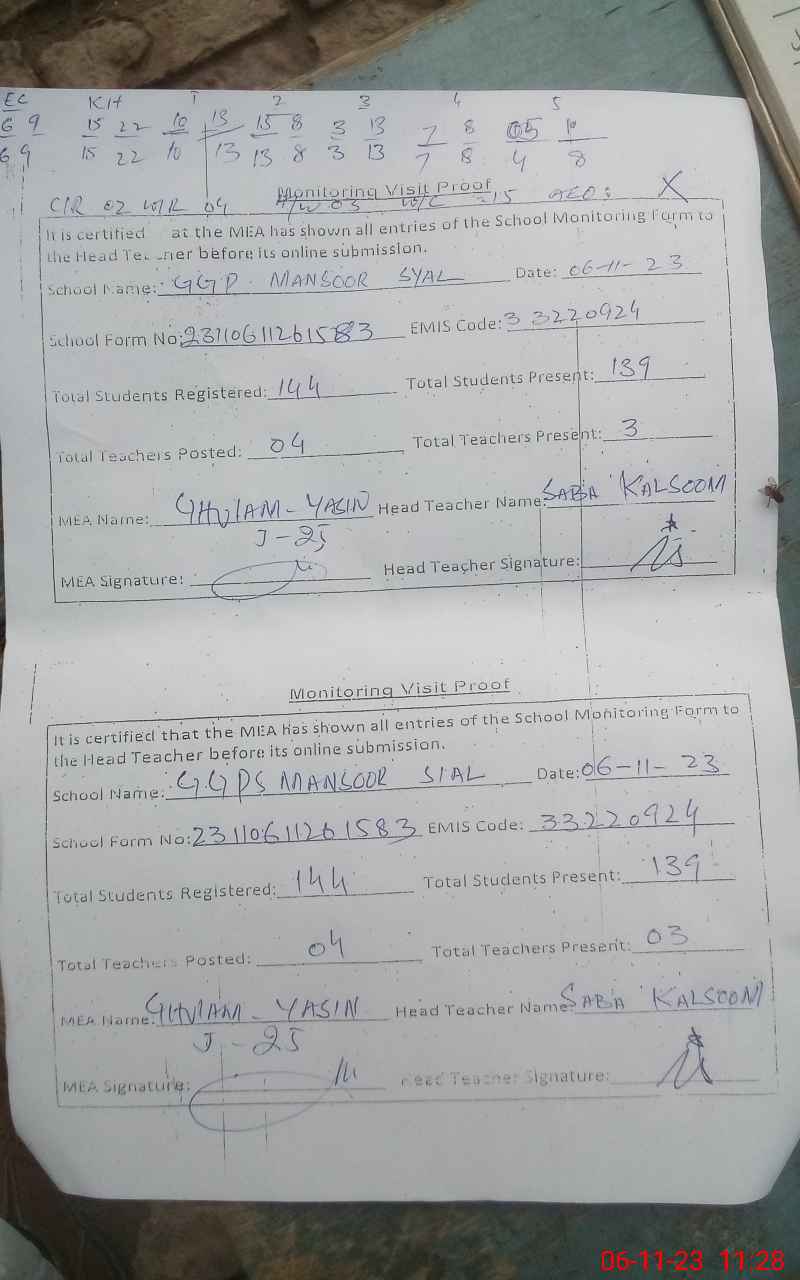 EC KIT 1 2 3 4 5
6 9 15 22 10 13 15 8 3 13 7 8 05 10
6 9 15 22 10 13 13 8 3 13 7 8 4 8
Monitoring Visit Proof
C/R 02 W/R 04 H/W 03 W/C 15 AEO: X
It is certified at the MEA has shown all entries of the School Monitoring Form to
the Head Teacher before its online submission.
School Name: GGP. MANSOOR SYAL Date: 06-11-23
School Form No: 23110611261583 EMIS Code: 33220924
Total Students Registered: 144 Total Students Present: 139
Total Teachers Posted: 04 Total Teachers Present: 3
MEA Name: GHULAM-YASIN Head Teacher Name: SABA KALSOOM
J-25
MEA Signature: Head Teacher Signature:
Monitoring Visit Proof
It is certified that the MEA has shown all entries of the School Monitoring Form to
the Head Teacher before its online submission.
School Name: GGPS MANSOOR SIAL Date: 06-11-23
School Form No: 23110611261583 EMIS Code: 33220924
Total Students Registered: 144 Total Students Present: 139
Total Teachers Posted: 04 Total Teachers Present: 03
MEA Name: GHULAM-YASIN Head Teacher Name: SABA KALSOOM
J-25
MEA Signature: Head Teacher Signature:
06-11-23 11:28